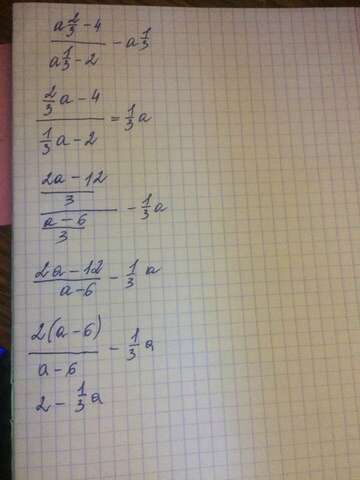 (a 2/3 - 4)/(a 1/3 - 2) - a 1/3
(2/3 a - 4)/(1/3 a - 2) = 1/3 a
((2a - 12)/3)/((a - 6)/3) - 1/3 a
(2a - 12)/(a - 6) - 1/3 a
(2(a - 6))/(a - 6) - 1/3 a
2 - 1/3 a